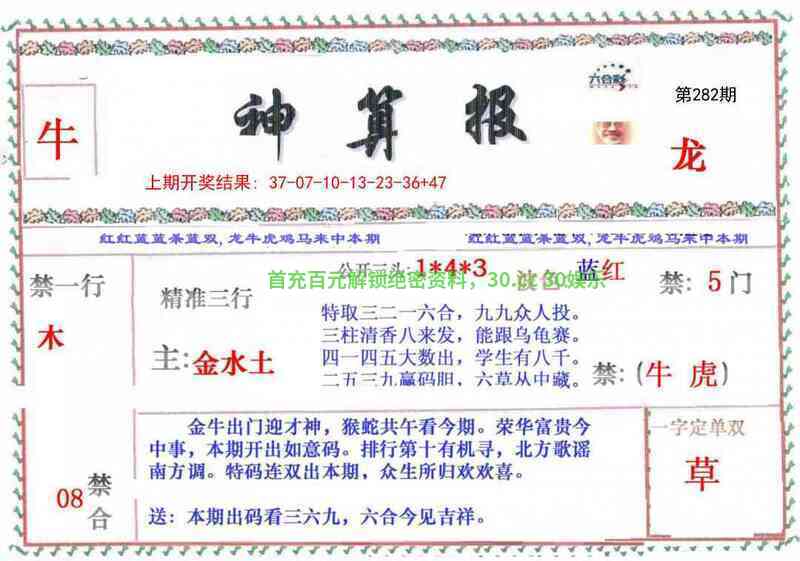 六合彩
第282期
神算报
牛
龙
上期开奖结果：37-07-10-13-23-36+47
红红蓝蓝条蓝双，龙牛虎鸡马来中本期
红红蓝蓝条蓝双，龙牛虎鸡马来中本期
公开三头 1*4*3
蓝红
首充百元解锁绝密资料，30.
30娱乐
禁一行
木
精准三行
主：金水土
特取三二一六合，九九众人投。
三柱清香八来发，能跟乌龟赛。
四一四五大数出，学生有八千。
二五三九赢码胆，六草从中藏。
禁：5门
禁：(牛 虎)
金牛出门迎才神，猴蛇共午看今期。荣华富贵今
中事，本期开出如意码。排行第十有机寻，北方歌谣
南方调。特码连双出本期，众生所归欢欢喜。
送：本期出码看三六九，六合今见吉祥。
08
禁合
一字定单双
草